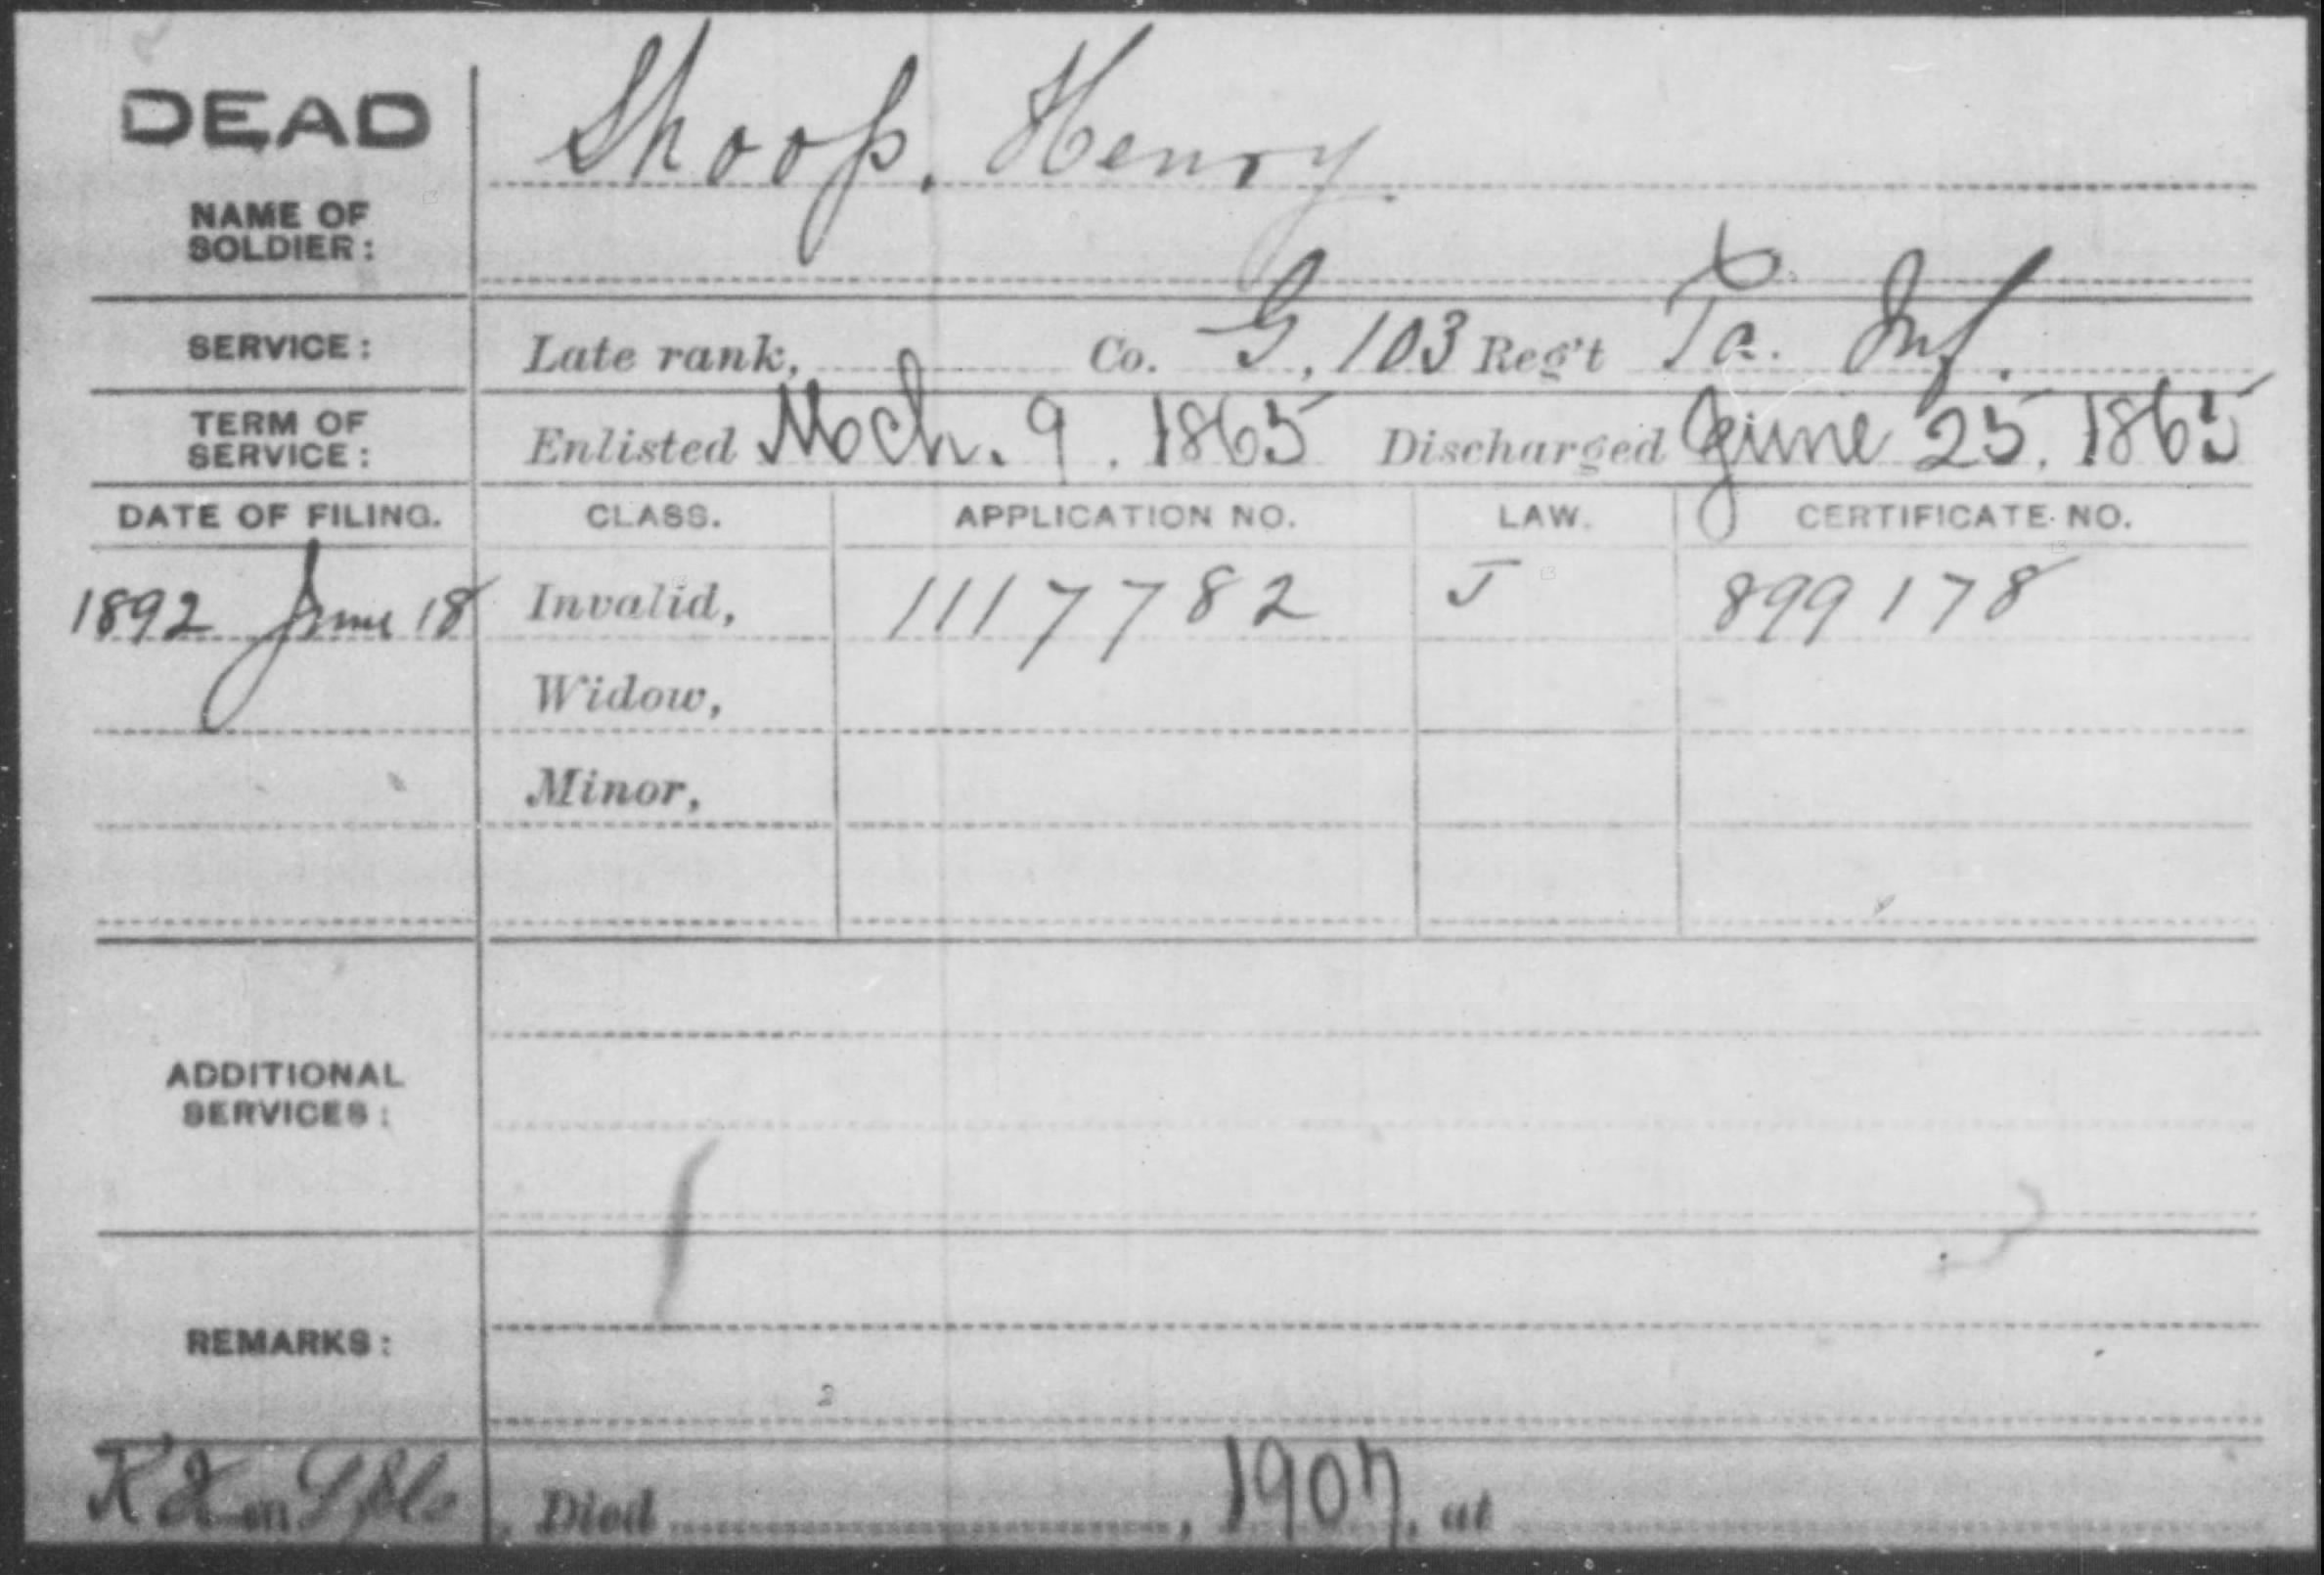 DEAD
Shoop, Henry
NAME OF
SOLDIER:
SERVICE: Late rank, Co. G, 103 Reg't Pa. Inf.
TERM OF
SERVICE: Enlisted Mch. 9. 1865 Discharged June 25. 1865
DATE OF FILING. CLASS. APPLICATION NO. LAW. CERTIFICATE NO.
1892 June 18 Invalid, 1117782 J 899178
Widow,
Minor,
ADDITIONAL
SERVICES:
REMARKS:
Died , 1907, at